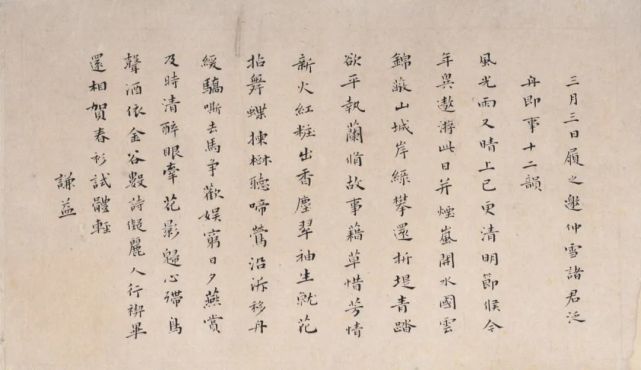 三月三日履之邀仲雪諸君泛
舟即事十二韻
風光雨又晴上巳更清明節候今
年異遨游此日并煙嵐開水國雲
錦蔽山城岸綠攀還折堤青踏
欲平執蘭脩故事藉草惜芳情
新火紅粧出香塵翠袖生就花
抬舞蝶揀樹聽啼鶯沿泝移舟
緩驕嘶去馬爭歡娛窮日夕燕賞
及時清醉眼牽花影歸心滯鳥
聲酒依金谷數詩儗麗人行禊畢
還相賀春衫試體輕
謙益